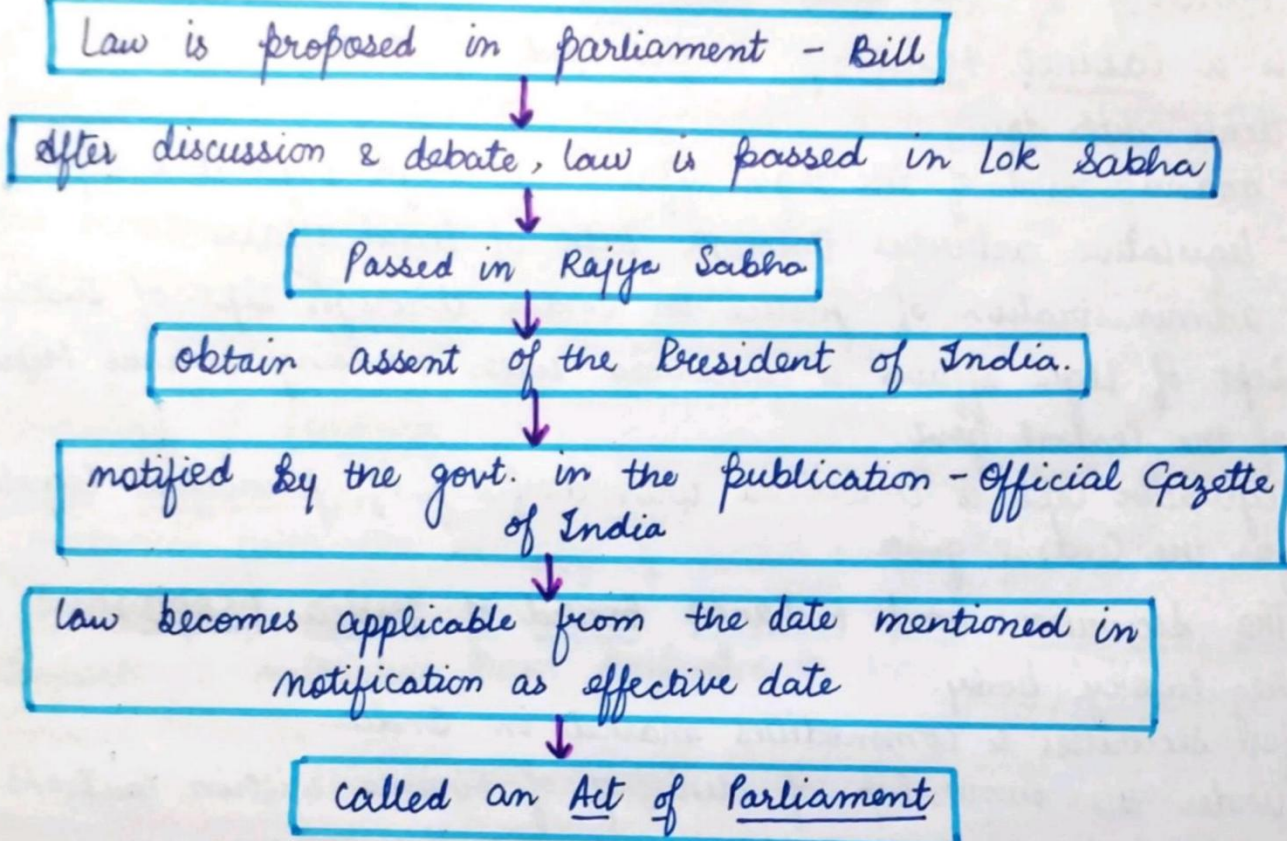 Law is proposed in parliament - Bill
After discussion & debate, law is passed in Lok Sabha
Passed in Rajya Sabha
obtain assent of the President of India.
notified by the govt. in the publication - Official Gazette
of India
law becomes applicable from the date mentioned in
notification as effective date
called an Act of Parliament